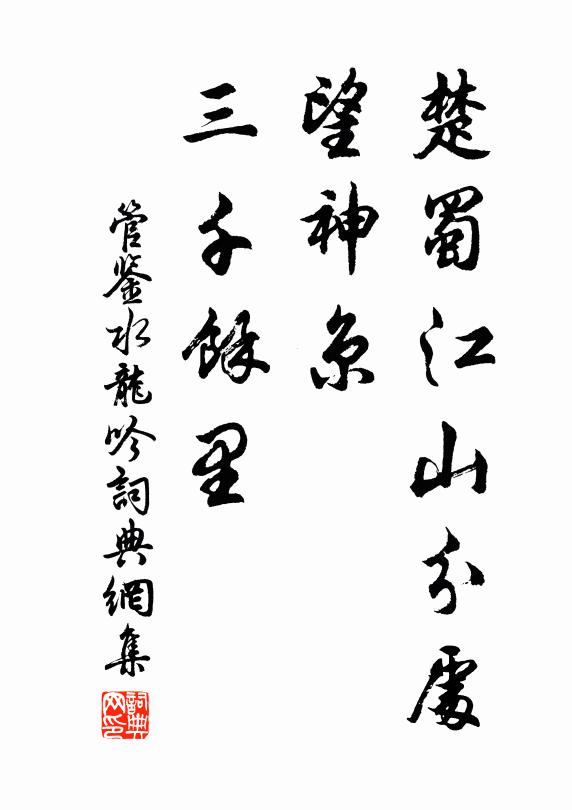 楚蜀江山分處
望神京
三千餘里
管鉴水龍吟詞典網集
詞典
网印